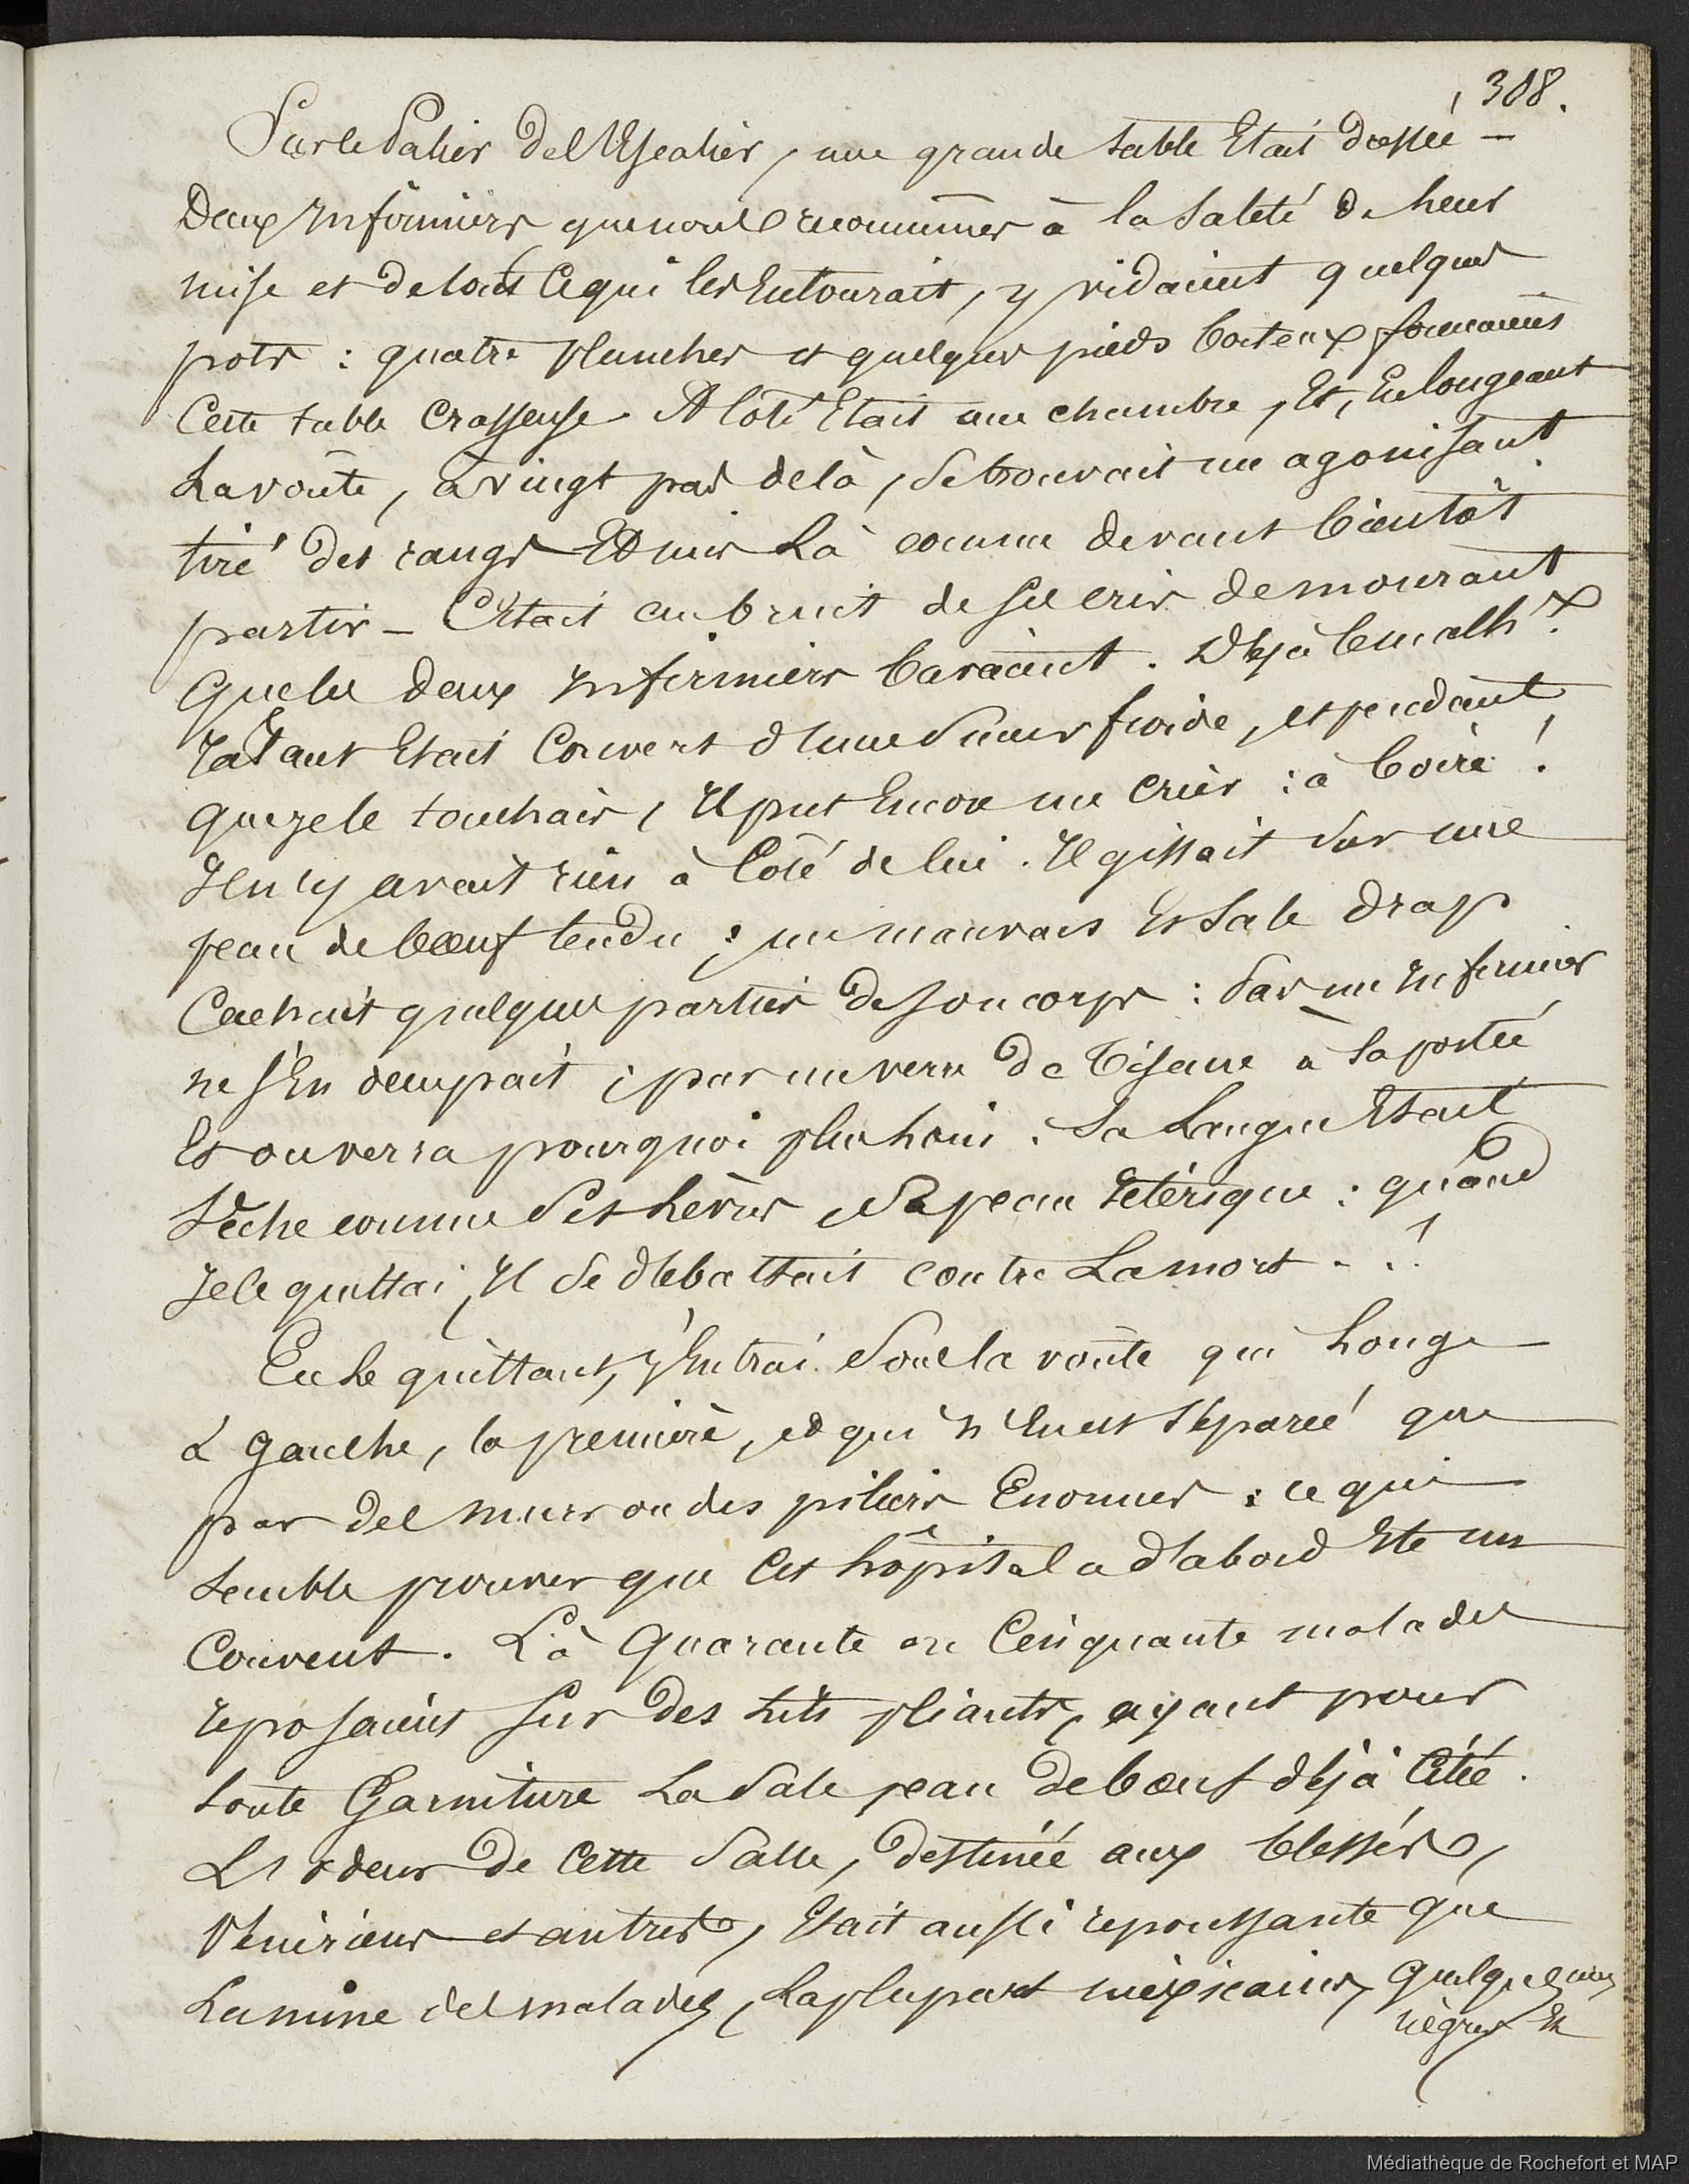 308.
Sur le Palier de l'Escalier, une grande table Etait dressée —
Deux Infirmiers que nous reconnûmes à la saleté de leur
mise et de tout ce qui les Entourait, y vidaient quelques
pots : quatre planches et quelques pieds boiteux formaient
Cette table Crasseuse. A Côté Etait une chambre, Et, En longeant
La voûte, à vingt pas de là, se trouvait un agonisant
tiré des rangs Et mis Là comme devant bientôt
partir — C'Etait au bruit de ses cris de mourant
Que les deux Infirmiers bavaient. Déjà le malh.x
Patient Etait Couvert d'une sueur froide, et pendant
que je le touchais, Il put Encore me Crier : à boire !
Il n'y avait rien à Côté de lui. Il gissait sur une
peau de boeuf tendu ; un mauvais Et sale drap
Cachait quelques parties de son corps : Pas un Infirmier
ne s'En occupait ; pas un verre de Tisane à sa portée
Et on verra pourquoi plus loin. Sa Langue Etait
sèche comme ses Lèvres, sa peau Ictérique : quand
Je le quittai, Il se débattait contre La mort . . !
En Le quittant, j'Entrai sous la voûte qui Longe
à Gauche, la première, et qui n'En est séparée que
par des murs ou des piliers Enormes : ce qui
semble prouver que Cet hôpital a d'abord Eté un
Couvent. Là Quarante ou Cinquante malades
reposaient sur des Lits pliants, ayant pour
toute Garniture La Sale peau de boeuf déjà Citée.
L'odeur de Cette Salle, destinée aux blessés,
Vénériens et autres, Etait aussi repoussante que
La mine des malades, La plupart mexicains, Quelques uns
nègres Et
Médiathèque de Rochefort et MAP